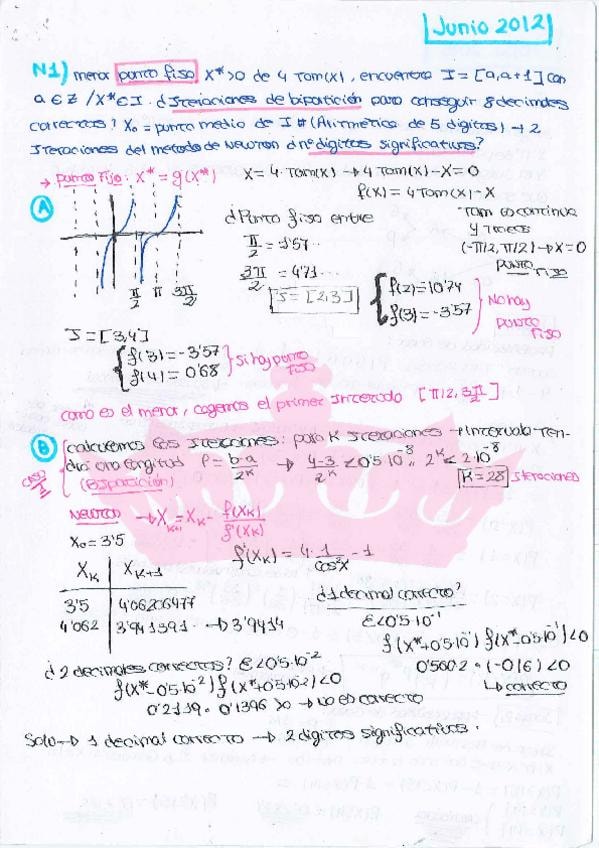 Junio 2012
N1) menor punto fiso X*>0 de 4 Tom(x), encuentra I=[a,a+1] con
a∈Z / X*∈I. ¿Iteraciones de bipartición para conseguir 8 decimales
correctas? X₀ = punto medio de I # (Aritmética de 5 digitos) → 2
Iteraciones del metodo de Newton ¿nº digitos significativos?
→ Punto Fijo: X* = g(X*) X = 4·Tom(x) → 4 Tom(x)-X = 0
f(x) = 4Tom(x)-X
A
¿Punto fiso entre
π/2 = 1'57...
3π/2 = 4'71...
π/2 π 3π/2
I = [2,3]
f(2)=-10'74
f(3)=-3'57
No hay punto fiso
Tom es continua
(-π/2, π/2) → X=0
punto fiso
I = [3,4]
f(3)=-3'57
f(4)=0'68
Si hay punto fiso
como es el menor, cogemos el primer intervalo [π/2, 3π/2]
B calculamos las Iteraciones: para K iteraciones → Intervalo ten-
drá una longitud P = b-a/2^K → 4-3/2^K < 0'5·10^-8
(Bipartición) K=28 Iteraciones
Newton → X_{K+1} = X_K - f(X_K)/f'(X_K)
X₀ = 3'5
f'(X_K) = 4·1/cos²x - 1
X_K X_{K+1}
3'5 4'06206477
4'062 3'941391 → 3'9414
¿1 decimal correcto?
ε<0'5·10^-1
f(X*+0'5·10^-1) f(X*-0'5·10^-1)<0
0'5602·(-0'16)<0
↳ correcto
¿2 decimales correctos? ε<0'5·10^-2
f(X*-0'5·10^-2) f(X*+0'5·10^-2)<0
0'2119·0'1396 >0 → no es correcto
Solu → 1 decimal correcto → 2 digitos significativos.